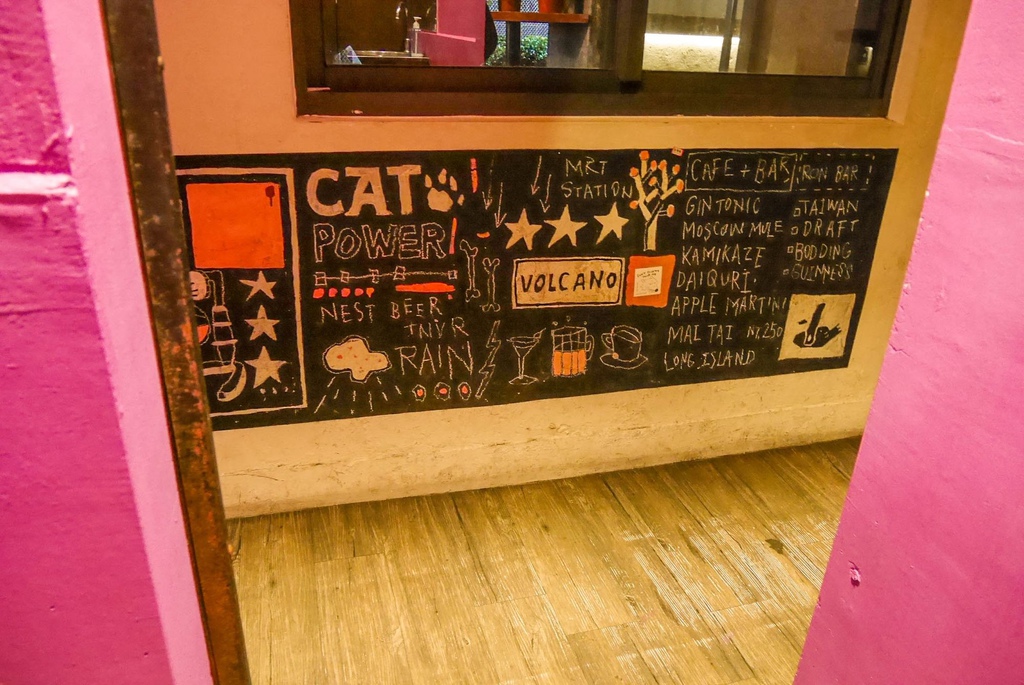 CAT
POWER
NEST BEER
TNVR
RAIN
MRT
STATION
VOLCANO
CAFE + BAR
GINTONIC
MOSCOW MULE
KAMIKAZE
DAIQURI
APPLE MARTINI
MAI TAI NT.250
LONG ISLAND
IRON BAR
TAIWAN
DRAFT
BODDING
GUINNESS